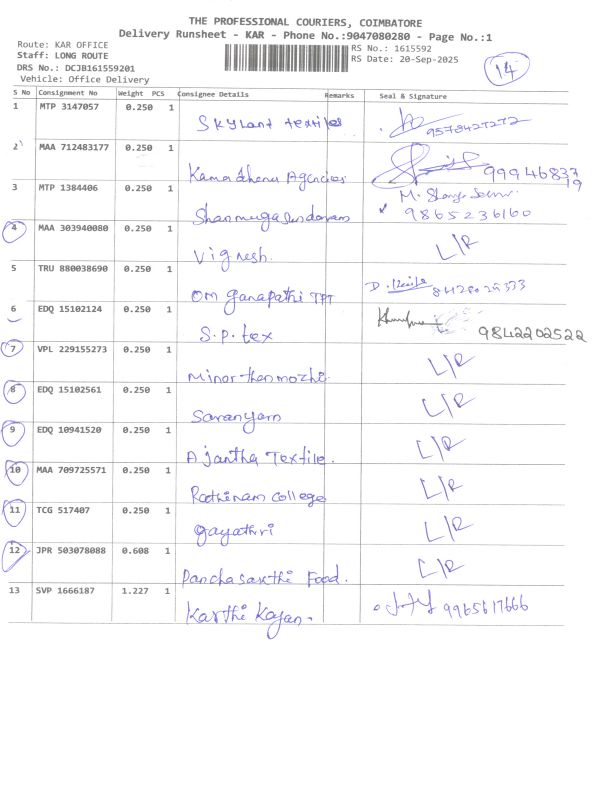 THE PROFESSIONAL COURIERS, COIMBATORE
Delivery Runsheet - KAR - Phone No.:9047080280 - Page No.:1
Route: KAR OFFICE
Staff: LONG ROUTE
DRS No.: DCJB161559201
Vehicle: Office Delivery
RS No.: 1615592
RS Date: 20-Sep-2025
14
S No Consignment No Weight PCS Consignee Details Remarks Seal & Signature
1 MTP 3147057 0.250 1 Skylant textiles 9578427272
2 MAA 712483177 0.250 1 Kamadhenu Agencies 9994683719
3 MTP 1384406 0.250 1 Shanmugasundaram M. 9865236160
4 MAA 303940080 0.250 1 Vignesh. L/R
5 TRU 880038690 0.250 1 OM Ganapathi TPT D.
6 EDQ 15102124 0.250 1 S.p.tex 9842202522
7 VPL 229155273 0.250 1 Minor thenmozhi L/R
8 EDQ 15102561 0.250 1 Saranyam L/R
9 EDQ 10941520 0.250 1 Ajantha Textile. L/R
10 MAA 709725571 0.250 1 Rathinam college L/R
11 TCG 517407 0.250 1 Gayathri L/R
12 JPR 503078088 0.608 1 Panchasakthi Food. L/R
13 SVP 1666187 1.227 1 Karthi Kayan. 9965617666